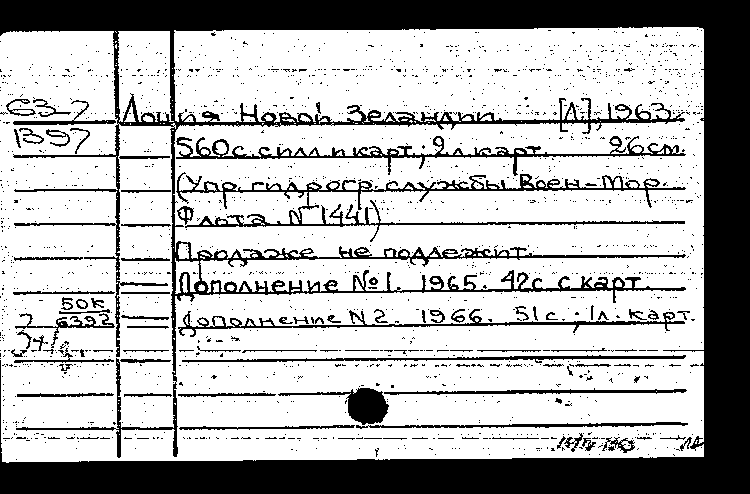 63-7 Лоция Новой Зеландии. [Л.], 1963.
1397 560с. с илл. и карт.; 2 л. карт. 26см.
(Упр. гидрогр. службы Воен-Мор.
Флота. № 1441)
Продаже не подлежит.
Дополнение №1. 1965. 42с с карт.
50к
6392 Дополнение N2. 1966. 51с.; 1л. карт.